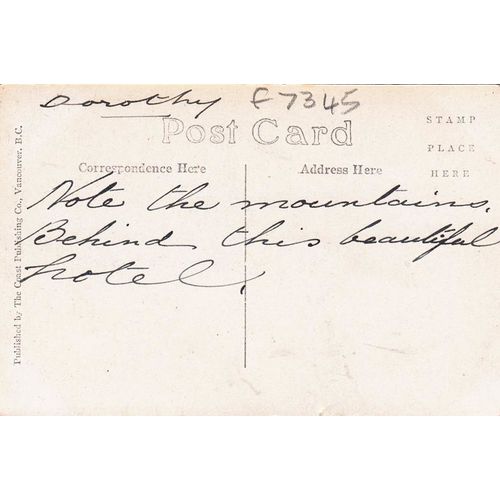 Dorothy F 7345
Post Card
STAMP
PLACE
HERE
Correspondence Here
Address Here
Note the mountains.
Behind this beautiful
hotel.
Published by The Coast Publishing Co., Vancouver, B.C.